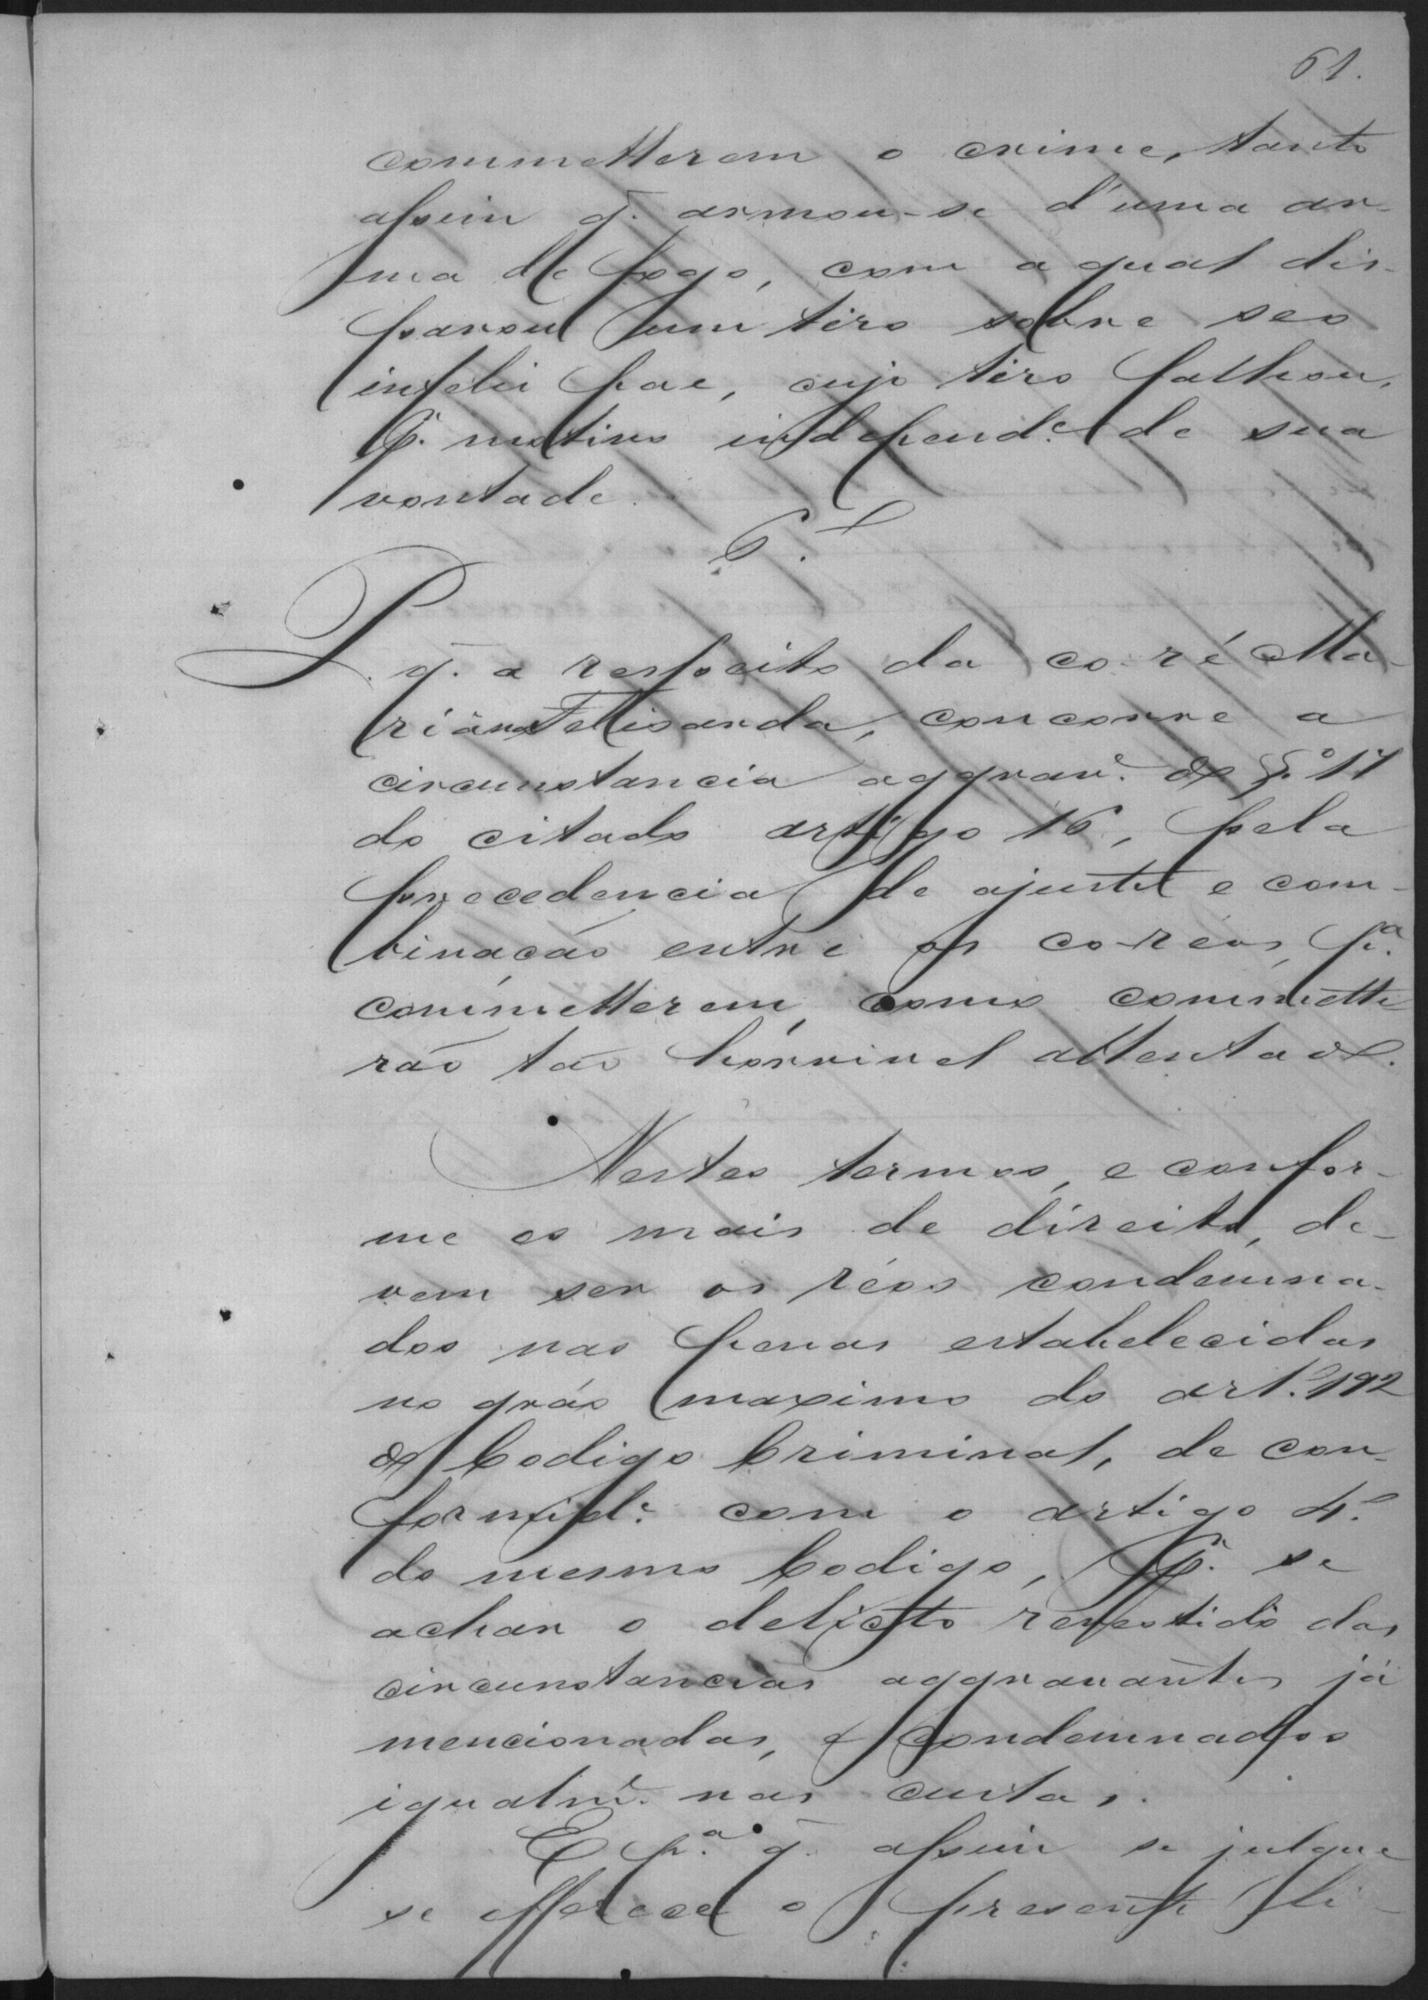 61.
commetterem o crime, tanto
assim q̃. armou-se d'uma ar-
ma de fogo, com a qual dis-
parou um tiro sobre seo
infeliz pae, cujo tiro falhou,
p.r motivo independ.e de sua
vontade.
6.º
P. q̃. a respeito da co-ré Ma-
riana Felisarda, concorre a
circunstancia aggrav.e do §.º 17
do citado artigo 16, pela
precedencia de ajuste e com-
binação entre os co-réos, p.a
commetterem, como commette-
rão tão horrivel attentado.
Nestes termos, e confor-
me os mais de direito, de-
vem ser os réos condemna-
dos nas penas estabelecidas
no gráo maximo do art.º 192
do Codigo Criminal, de con-
formid.e com o artigo 4.º
do mesmo Codigo, p.r se
achar o delicto revestido das
circunstancias aggravantes já
mencionadas, e condemnados
igualm.e nas custas.
E p.a q̃. assim se julgue
se offerece o presente li-